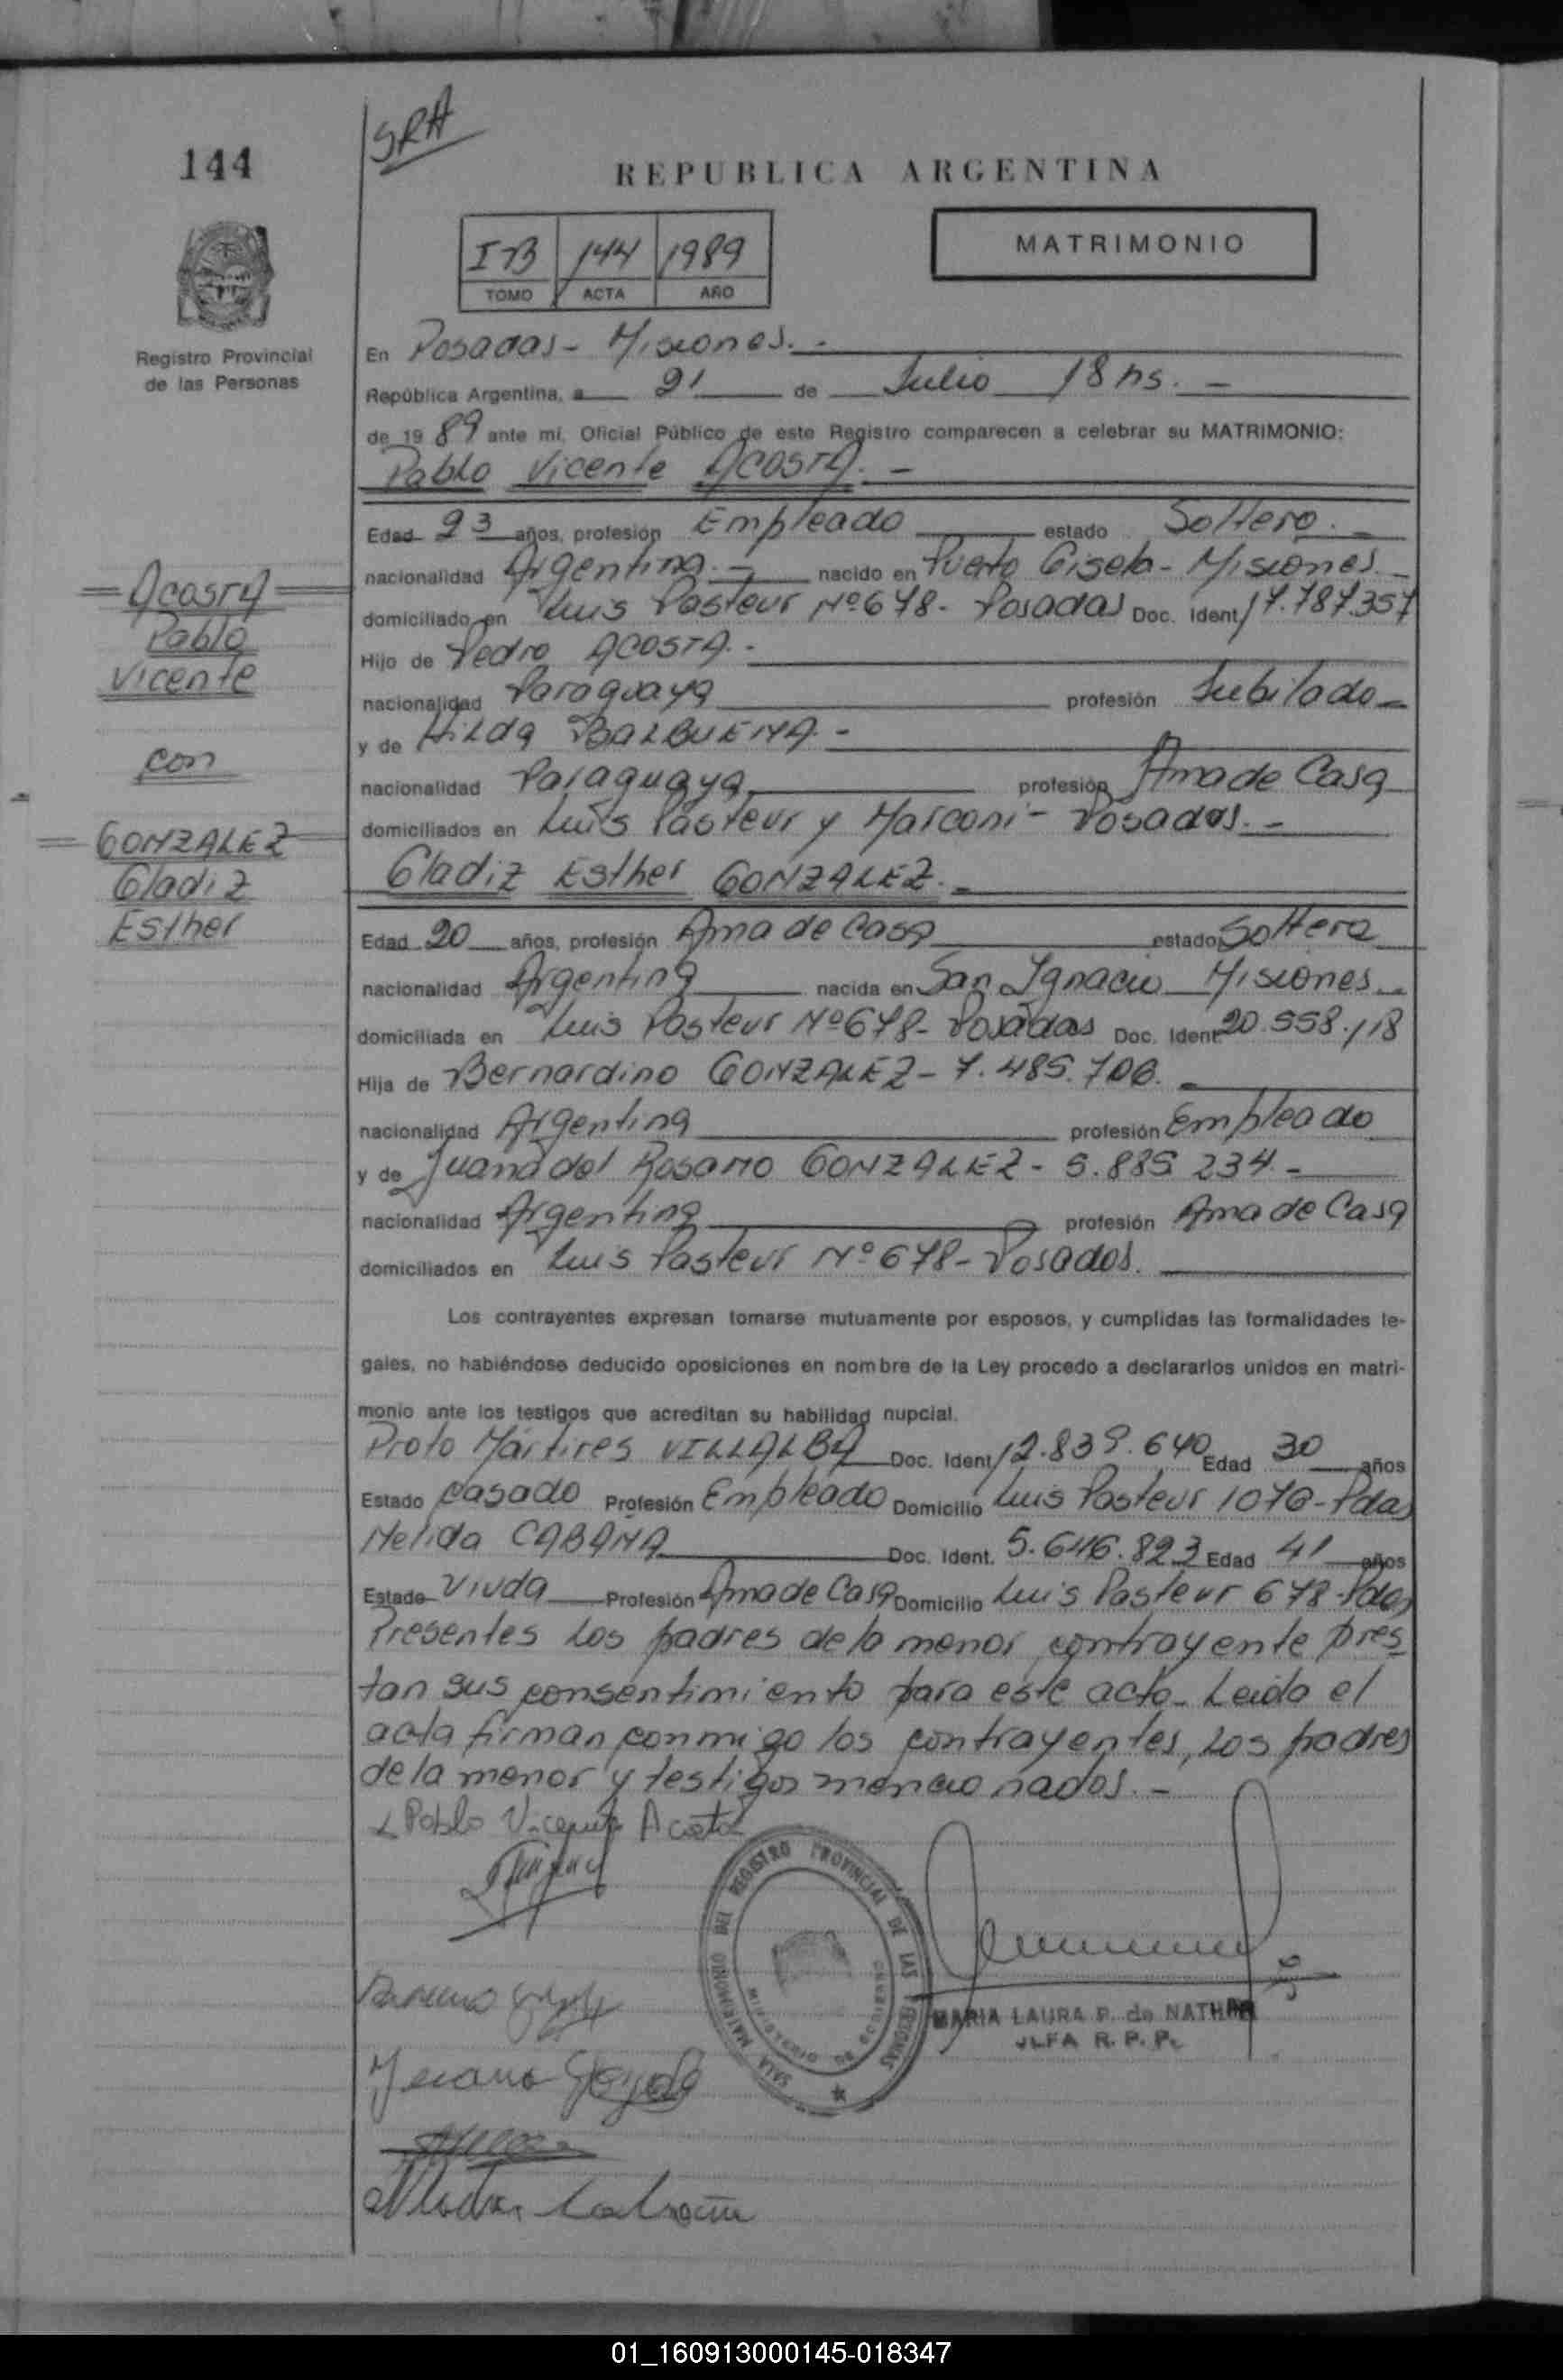 144
SRA
REPUBLICA ARGENTINA
IB 144 1989
TOMO ACTA AÑO
MATRIMONIO
Registro Provincial
de las Personas
En Posadas - Misiones. -
República Argentina, a 21 de Julio 18 hs. -
de 19 89 ante mí, Oficial Público de este Registro comparecen a celebrar su MATRIMONIO:
Pablo Vicente ACOSTA. -
Edad 23 años, profesión Empleado estado Soltero. -
nacionalidad Argentina. - nacido en Puerto Gisela - Misiones. -
domiciliado en Luis Pasteur Nº 678 - Posadas Doc. Ident. 17.787.357
Hijo de Pedro ACOSTA. -
nacionalidad Paraguaya profesión Jubilado -
y de Hilda BALBUENA. -
nacionalidad Paraguaya profesión Ama de Casa
domiciliados en Luis Pasteur y Marconi - Posadas. -
Gladiz Esther GONZALEZ. -
Edad 20 años, profesión Ama de Casa estado Soltera
nacionalidad Argentina nacida en San Ignacio Misiones -
domiciliada en Luis Pasteur Nº 678 - Posadas Doc. Ident. 20.558.118
Hija de Bernardino GONZALEZ - 7.485.706. -
nacionalidad Argentina profesión Empleado
y de Juana del Rosario GONZALEZ - 5.885 234. -
nacionalidad Argentina profesión Ama de Casa
domiciliados en Luis Pasteur Nº 678 - Posadas.
Los contrayentes expresan tomarse mutuamente por esposos, y cumplidas las formalidades le-
gales, no habiéndose deducido oposiciones en nombre de la Ley procedo a declararlos unidos en matri-
monio ante los testigos que acreditan su habilidad nupcial.
Proto Mártires VILLALBA Doc. Ident. 12.839.640 Edad 30 años
Estado Casado Profesión Empleado Domicilio Luis Pasteur 1076 - Pdas
Nelida CABAÑA Doc. Ident. 5.646.823 Edad 41 años
Estado Viuda Profesión Ama de Casa Domicilio Luis Pasteur 678 - Pdas
Presentes los padres de la menor contrayente pres
tan sus consentimiento para este acto - Leída el
acta firman conmigo los contrayentes, los padres
de la menor y testigos mencionados. -
Pablo Vicente Acosta
SALA MATRIMONIO DEL REGISTRO PROVINCIAL DE LAS PERSONAS
MARIA LAURA P. de NATHER
JEFA R. P. P.
ACOSTA
Pablo
Vicente
con
GONZALEZ
Gladiz
Esther
01_160913000145-018347